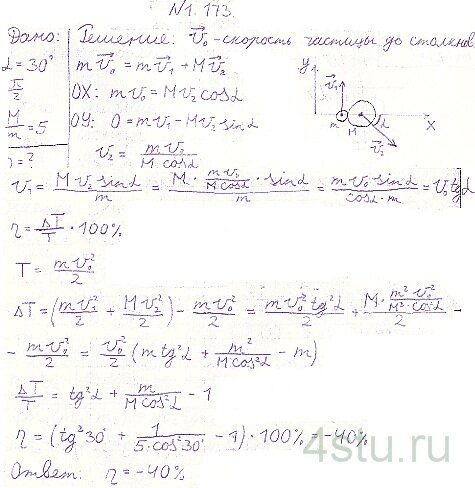 N1.173.
Дано: Решение: v⃗₀ - скорость частицы до столкнов.
α = 30° mv⃗₀ = mv⃗₁ + Mv⃗₂
π/2 OX: mv₀ = Mv₂cosα
M/m = 5 OY: 0 = mv₁ - Mv₂sinα
η = ? v₂ = mv₀/(M cosα)
y v⃗₁ m M α v⃗₂ x
v₁ = (Mv₂ sinα)/m = (M · mv₀/(M cosα) · sinα)/m = (mv₀ sinα)/(cosα · m) = v₀tgα
η = ΔT/T · 100%
T = mv₀²/2
ΔT = (mv₁²/2 + Mv₂²/2) - mv₀²/2 = mv₀² tg²α/2 + (M · m²v₀²/(M² cos²α))/2 -
- mv₀²/2 = v₀²/2 (m tg²α + m²/(M cos²α) - m)
ΔT/T = tg²α + m/(M cos²α) - 1
η = (tg²30° + 1/(5·cos²30°) - 1) · 100% = -40%
Ответ: η = -40%
4stu.ru